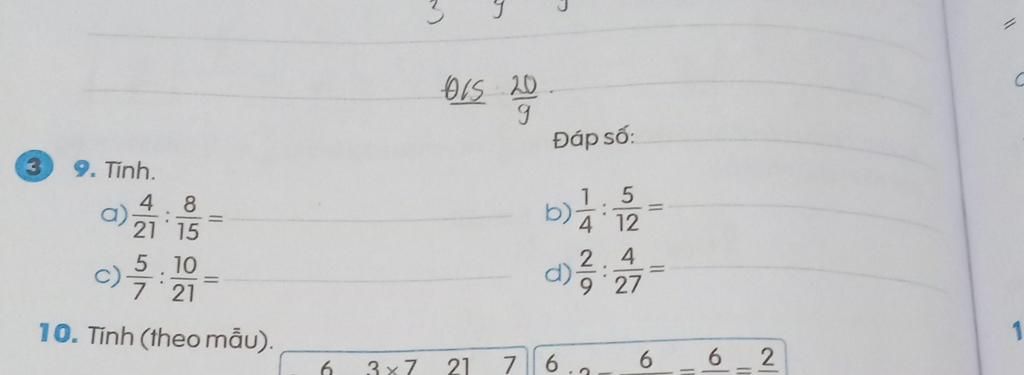 3 9 9
Đ/S 20/9.
Đáp số:
3 9. Tính.
a) 4/21 : 8/15 = b) 1/4 : 5/12 =
c) 5/7 : 10/21 = d) 2/9 : 4/27 =
10. Tính (theo mẫu).
6 3 × 7 21 7 6 : 6 = 6 = 2
1